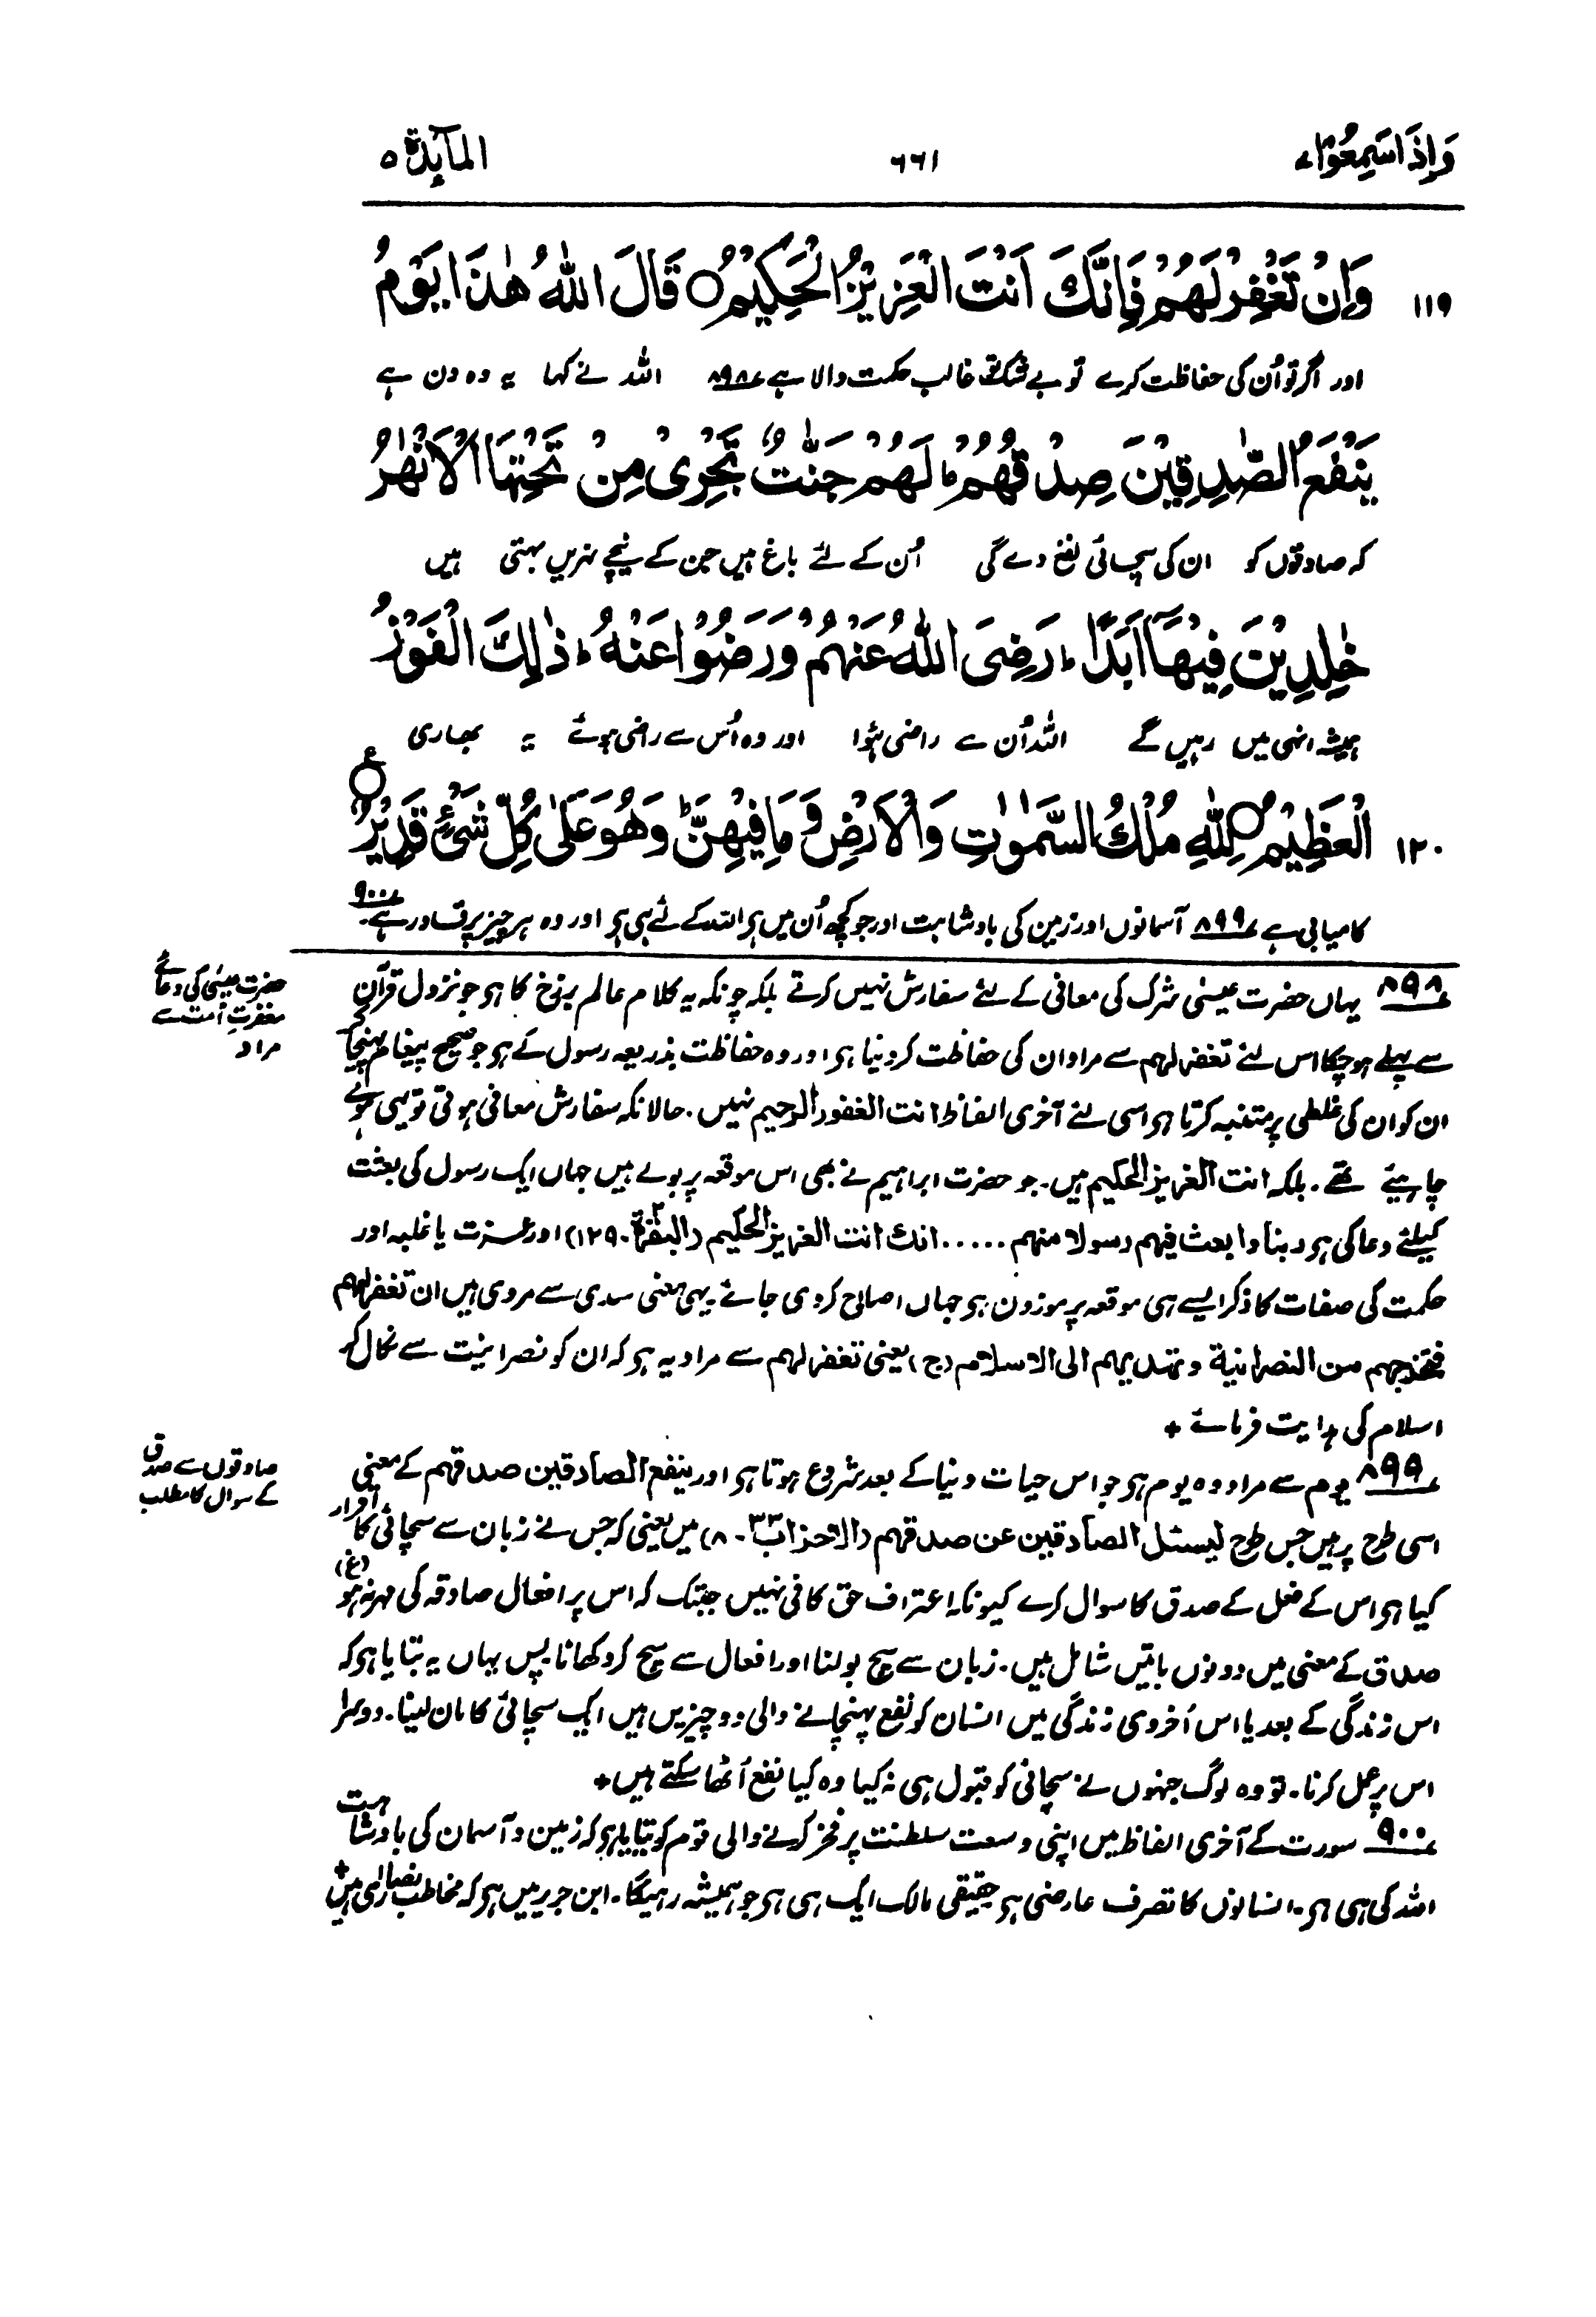 وَاِذَا سَمِعُوْا ٧
٦٦١
المآىِٕدة ٥
١١٩
وَاِنْ تَغْفِرْ لَهُمْ فَاِنَّكَ اَنْتَ الْعَزِيْزُ الْحَكِيْمُ ○ قَالَ اللّٰهُ هٰذَا يَوْمُ
اور اگر تو اُن کی حفاظت کرے تو بے شک تو غالب حکمت والا ہے ٨٩٨ اللہ نے کہا یہ وہ دن ہے
يَنْفَعُ الصّٰدِقِيْنَ صِدْقُهُمْ ؕ لَهُمْ جَنّٰتٌ تَجْرِىْ مِنْ تَحْتِهَا الْاَنْهٰرُ
کہ صادقوں کو ان کی سچائی نفع دے گی اُن کے لئے باغ ہیں جن کے نیچے نہریں بہتی ہیں
خٰلِدِيْنَ فِيْهَآ اَبَدًا ؕ رَضِىَ اللّٰهُ عَنْهُمْ وَرَضُوْا عَنْهُ ؕ ذٰلِكَ الْفَوْزُ
ہمیشہ انہی میں رہیں گے اللہ اُن سے راضی ہؤا اور وہ اُس سے راضی ہوئے یہ بھاری
١٢٠
الْعَظِيْمُ ○ لِلّٰهِ مُلْكُ السَّمٰوٰتِ وَالْاَرْضِ وَمَا فِيْهِنَّ ؕ وَهُوَ عَلٰى كُلِّ شَىْءٍ قَدِيْرٌ ○ ع
کامیابی ہے ٨٩٩ آسمانوں اور زمین کی بادشاہت اور جو کچھ اُن میں ہو اللہ کے لئے ہی ہو اور وہ ہر چیز پر قادر ہے۔ ٩٠٠
حضرت عیسٰی کی دعائے
مغفرتِ اُمت سے
مراد
٨٩٨ یہاں حضرت عیسٰی شرک کی معافی کے لئے سفارش نہیں کرتے بلکہ چونکہ یہ کلام عالم برزخ کا ہو جو نزول قرآن
سے پہلے ہو چکا اس لئے تغفر لہم سے مراد ان کی حفاظت کر دنیا ہو اور وہ حفاظت بذریعہ رسول کے ہو جو صحیح پیغام پہنچا کر
ان کو ان کی غلطی پر متنبہ کرتا ہو اسی لئے آخری الفاظ انت الغفور الرحیم نہیں۔ حالانکہ سفارش معافی ہوتی تو یہی ہونے
چاہیئے تھے۔ بلکہ انت العزیز الحکیم ہیں۔ جو حضرت ابراہیم نے بھی اس موقعہ پر بولے ہیں جہاں ایک رسول کی بعثت
کیلئے دعا کی ہو ربنا وابعث فیہم رسولا منہم ..... انک انت العزیز الحکیم (البقرۃ ٢۔ ١٢٩) اور عزت یا غلبہ اور
حکمت کی صفات کا ذکر ایسے ہی موقعہ پر موزون ہو جہاں اصلاح کر دی جائے۔ یہی معنی سدی سے مروی ہیں ان تغفر لہم
فتخرجہم من النصرانیة وتہدیہم الی الاسلام (ج) یعنی تغفر لہم سے مراد یہ ہو کہ ان کو نصرانیت سے نکال کر
اسلام کی ہدایت فرمائے +
صادقوں سے صدق
کے سوال کا مطلب
٨٩٩ یوم سے مراد وہ یوم ہو جو اس حیات دنیا کے بعد شروع ہوتا ہو اور ینفع الصادقین صدقہم کے معنی
اسی طرح پر ہیں جس طرح لیسئل الصادقین عن صدقہم (الاحزاب ٣٣۔ ٨) میں یعنی کہ جس نے زبان سے سچائی کا اقرار
کیا ہو اس کے فعل کے صدق کا سوال کرے کیونکہ اعتراف حق کافی نہیں جبتک کہ اس پر افعال صادقہ کی مہر نہ ہو (غ)
صدق کے معنی میں دونوں باتیں شامل ہیں۔ زبان سے سچ بولنا اور افعال سے سچ کر دکھانا پس یہاں یہ بتایا ہو کہ
اس زندگی کے بعد یا اس اُخروی زندگی میں انسان کو نفع پہنچانے والی دو چیزیں ہیں ایک سچائی کا مان لینا۔ دوسرا
اس پر عمل کرنا۔ تو وہ لوگ جنہوں نے سچائی کو قبول ہی نہ کیا وہ کیا نفع اُٹھا سکتے ہیں +
٩٠٠ سورت کے آخری الفاظ میں اپنی وسعت سلطنت پر فخر کرنے والی قوم کو بتایا ہو کہ زمین و آسمان کی بادشاہت
اللہ کی ہی ہو۔ انسانوں کا تصرف عارضی ہو حقیقی مالک ایک ہی ہو جو ہمیشہ رہیگا۔ ابن جریر میں ہو کہ مخاطب نصاریٰ ہیں +